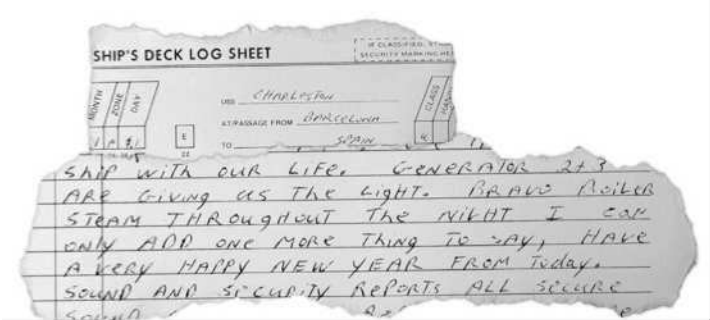 SHIP'S DECK LOG SHEET
IF CLASSIFIED, ST
SECURITY MARKING HE
MONTH ZONE DAY
USS CHARLESTON
CLASS
AT/PASSAGE FROM BARCELONA
E
TO SPAIN
SHIP WITH OUR LIFE. GENERATOR 2+3
ARE GIVING US THE LIGHT. BRAVO BOILER
STEAM THROUGHOUT THE NIGHT I CAN
ONLY ADD ONE MORE THING TO SAY, HAVE
A VERY HAPPY NEW YEAR FROM Today.
SOUND AND SECURITY REPORTS ALL SECURE